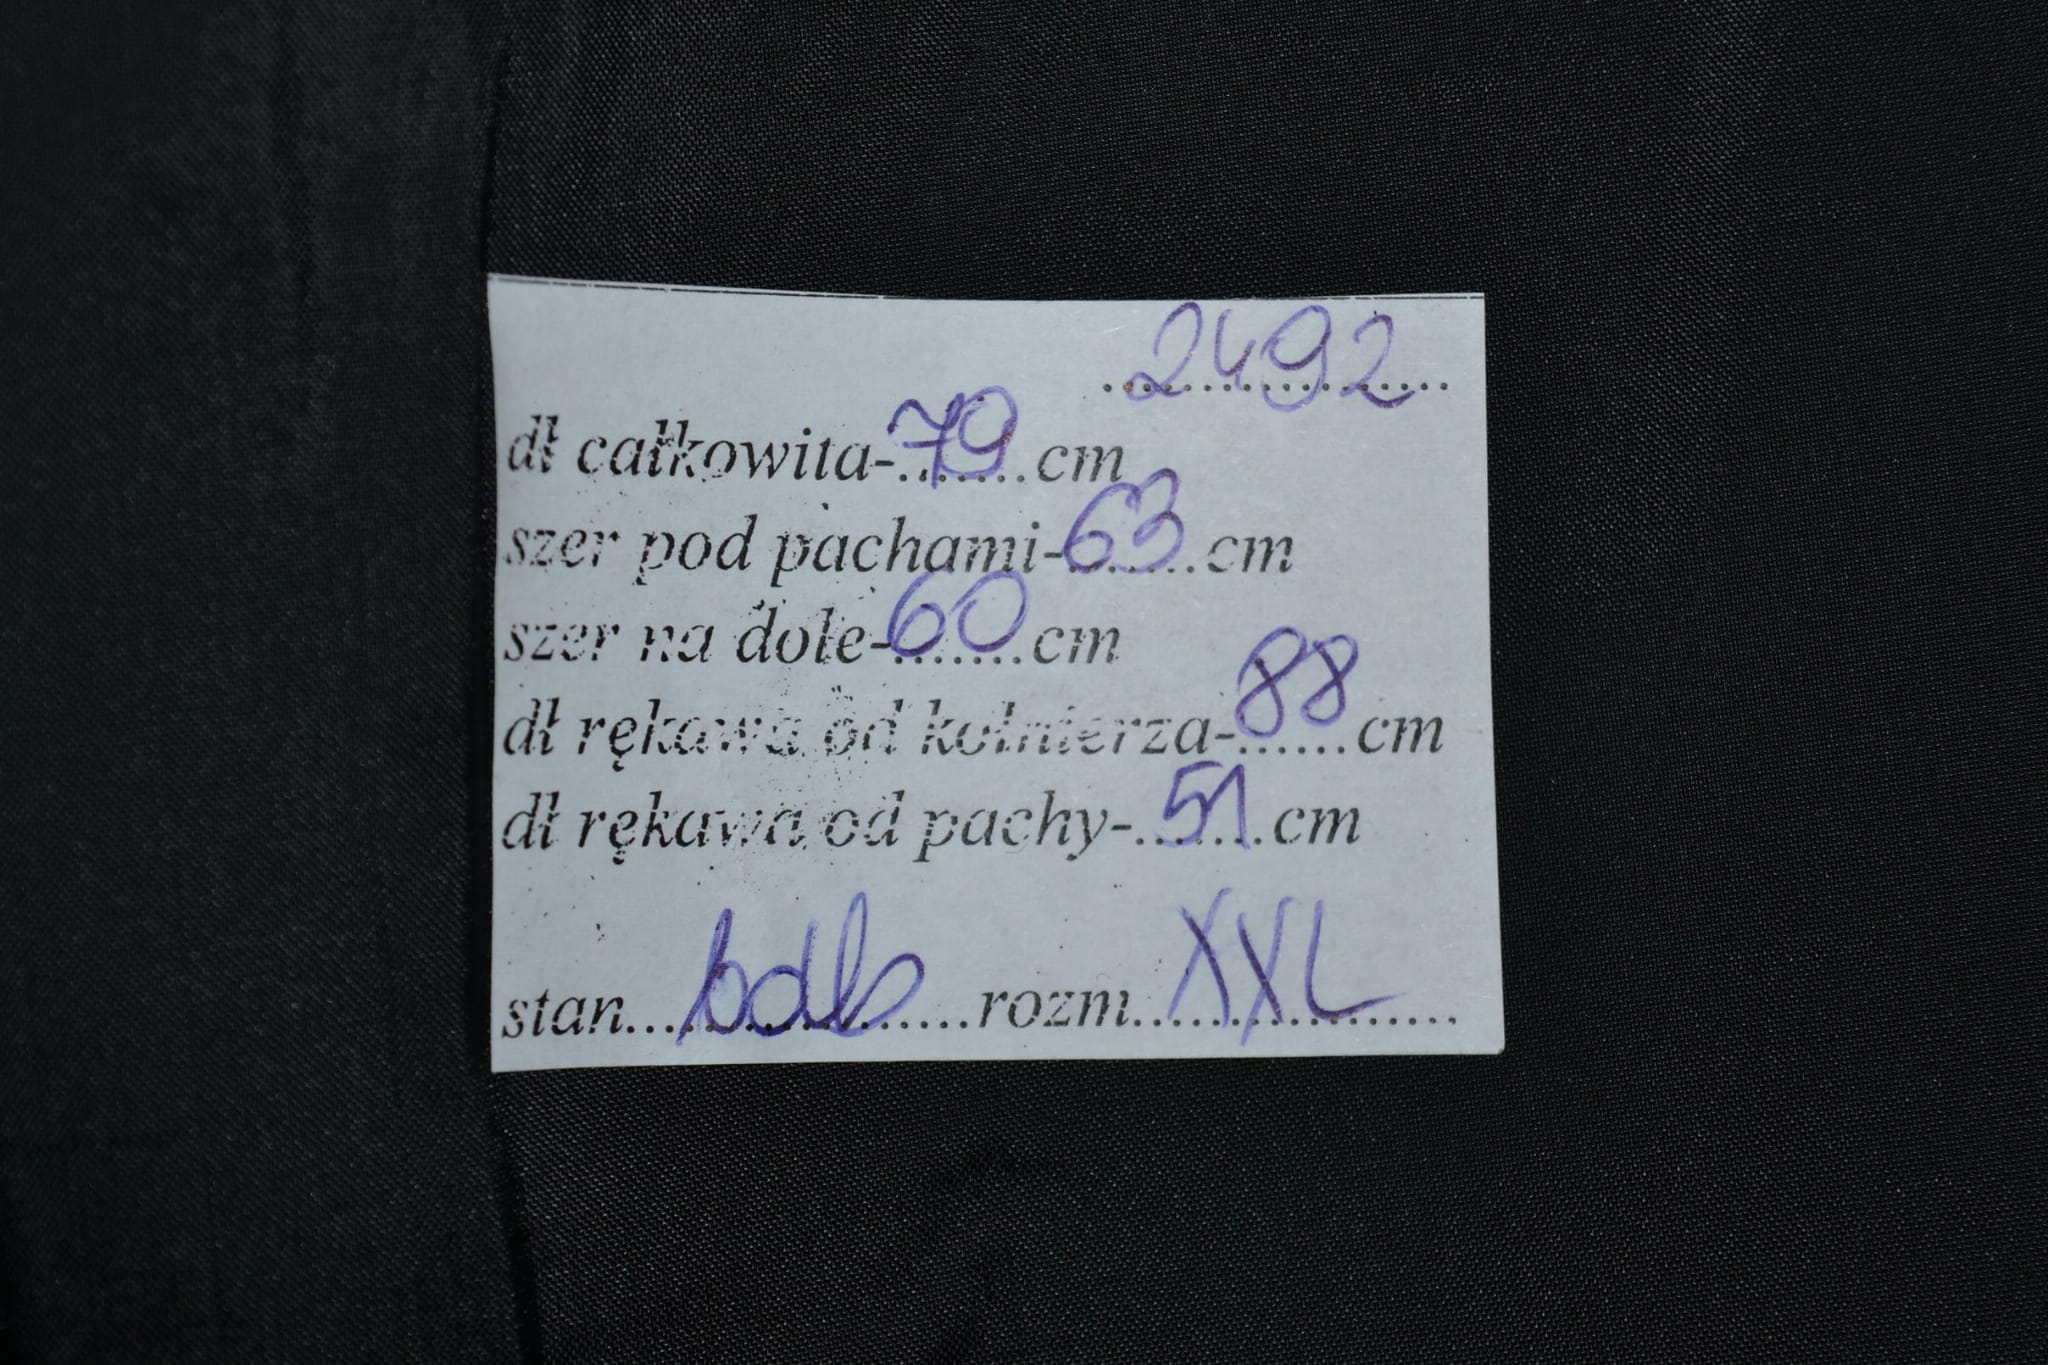 2492
dł całkowita-79cm
szer pod pachami-63cm
szer na dole-60cm
dł rękawa od kołnierza-88cm
dł rękawa od pachy-51cm
stan bdb rozm XXL